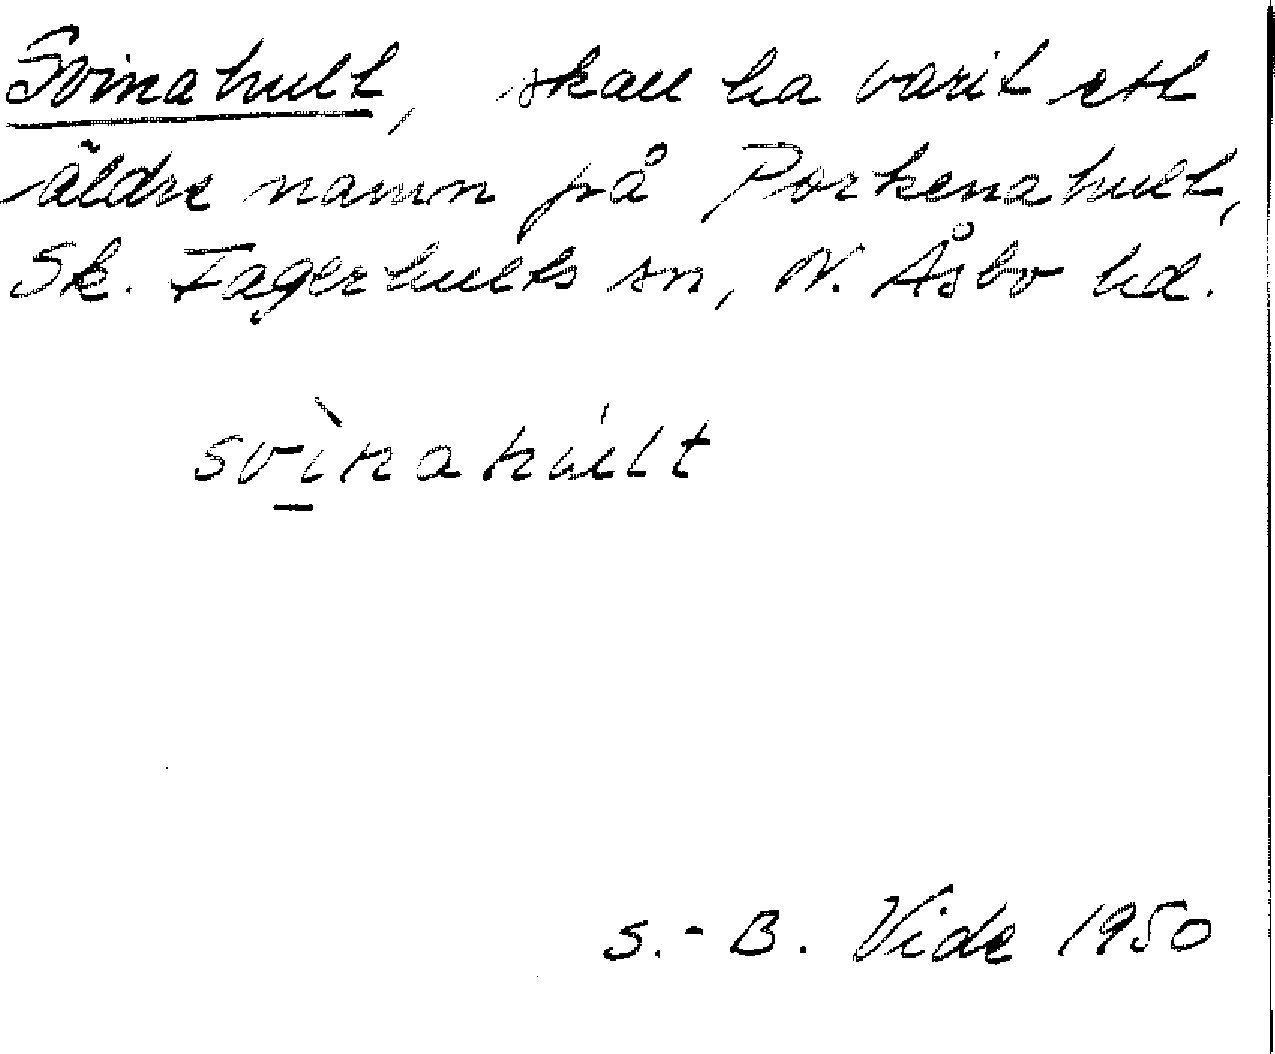 Svinahult, skall ha varit ett
äldre namn på Porkenahult,
Sk. Fagerhults sn, N. Åsbo hd.
svì̲nahúlt
S.-B. Vide 1950